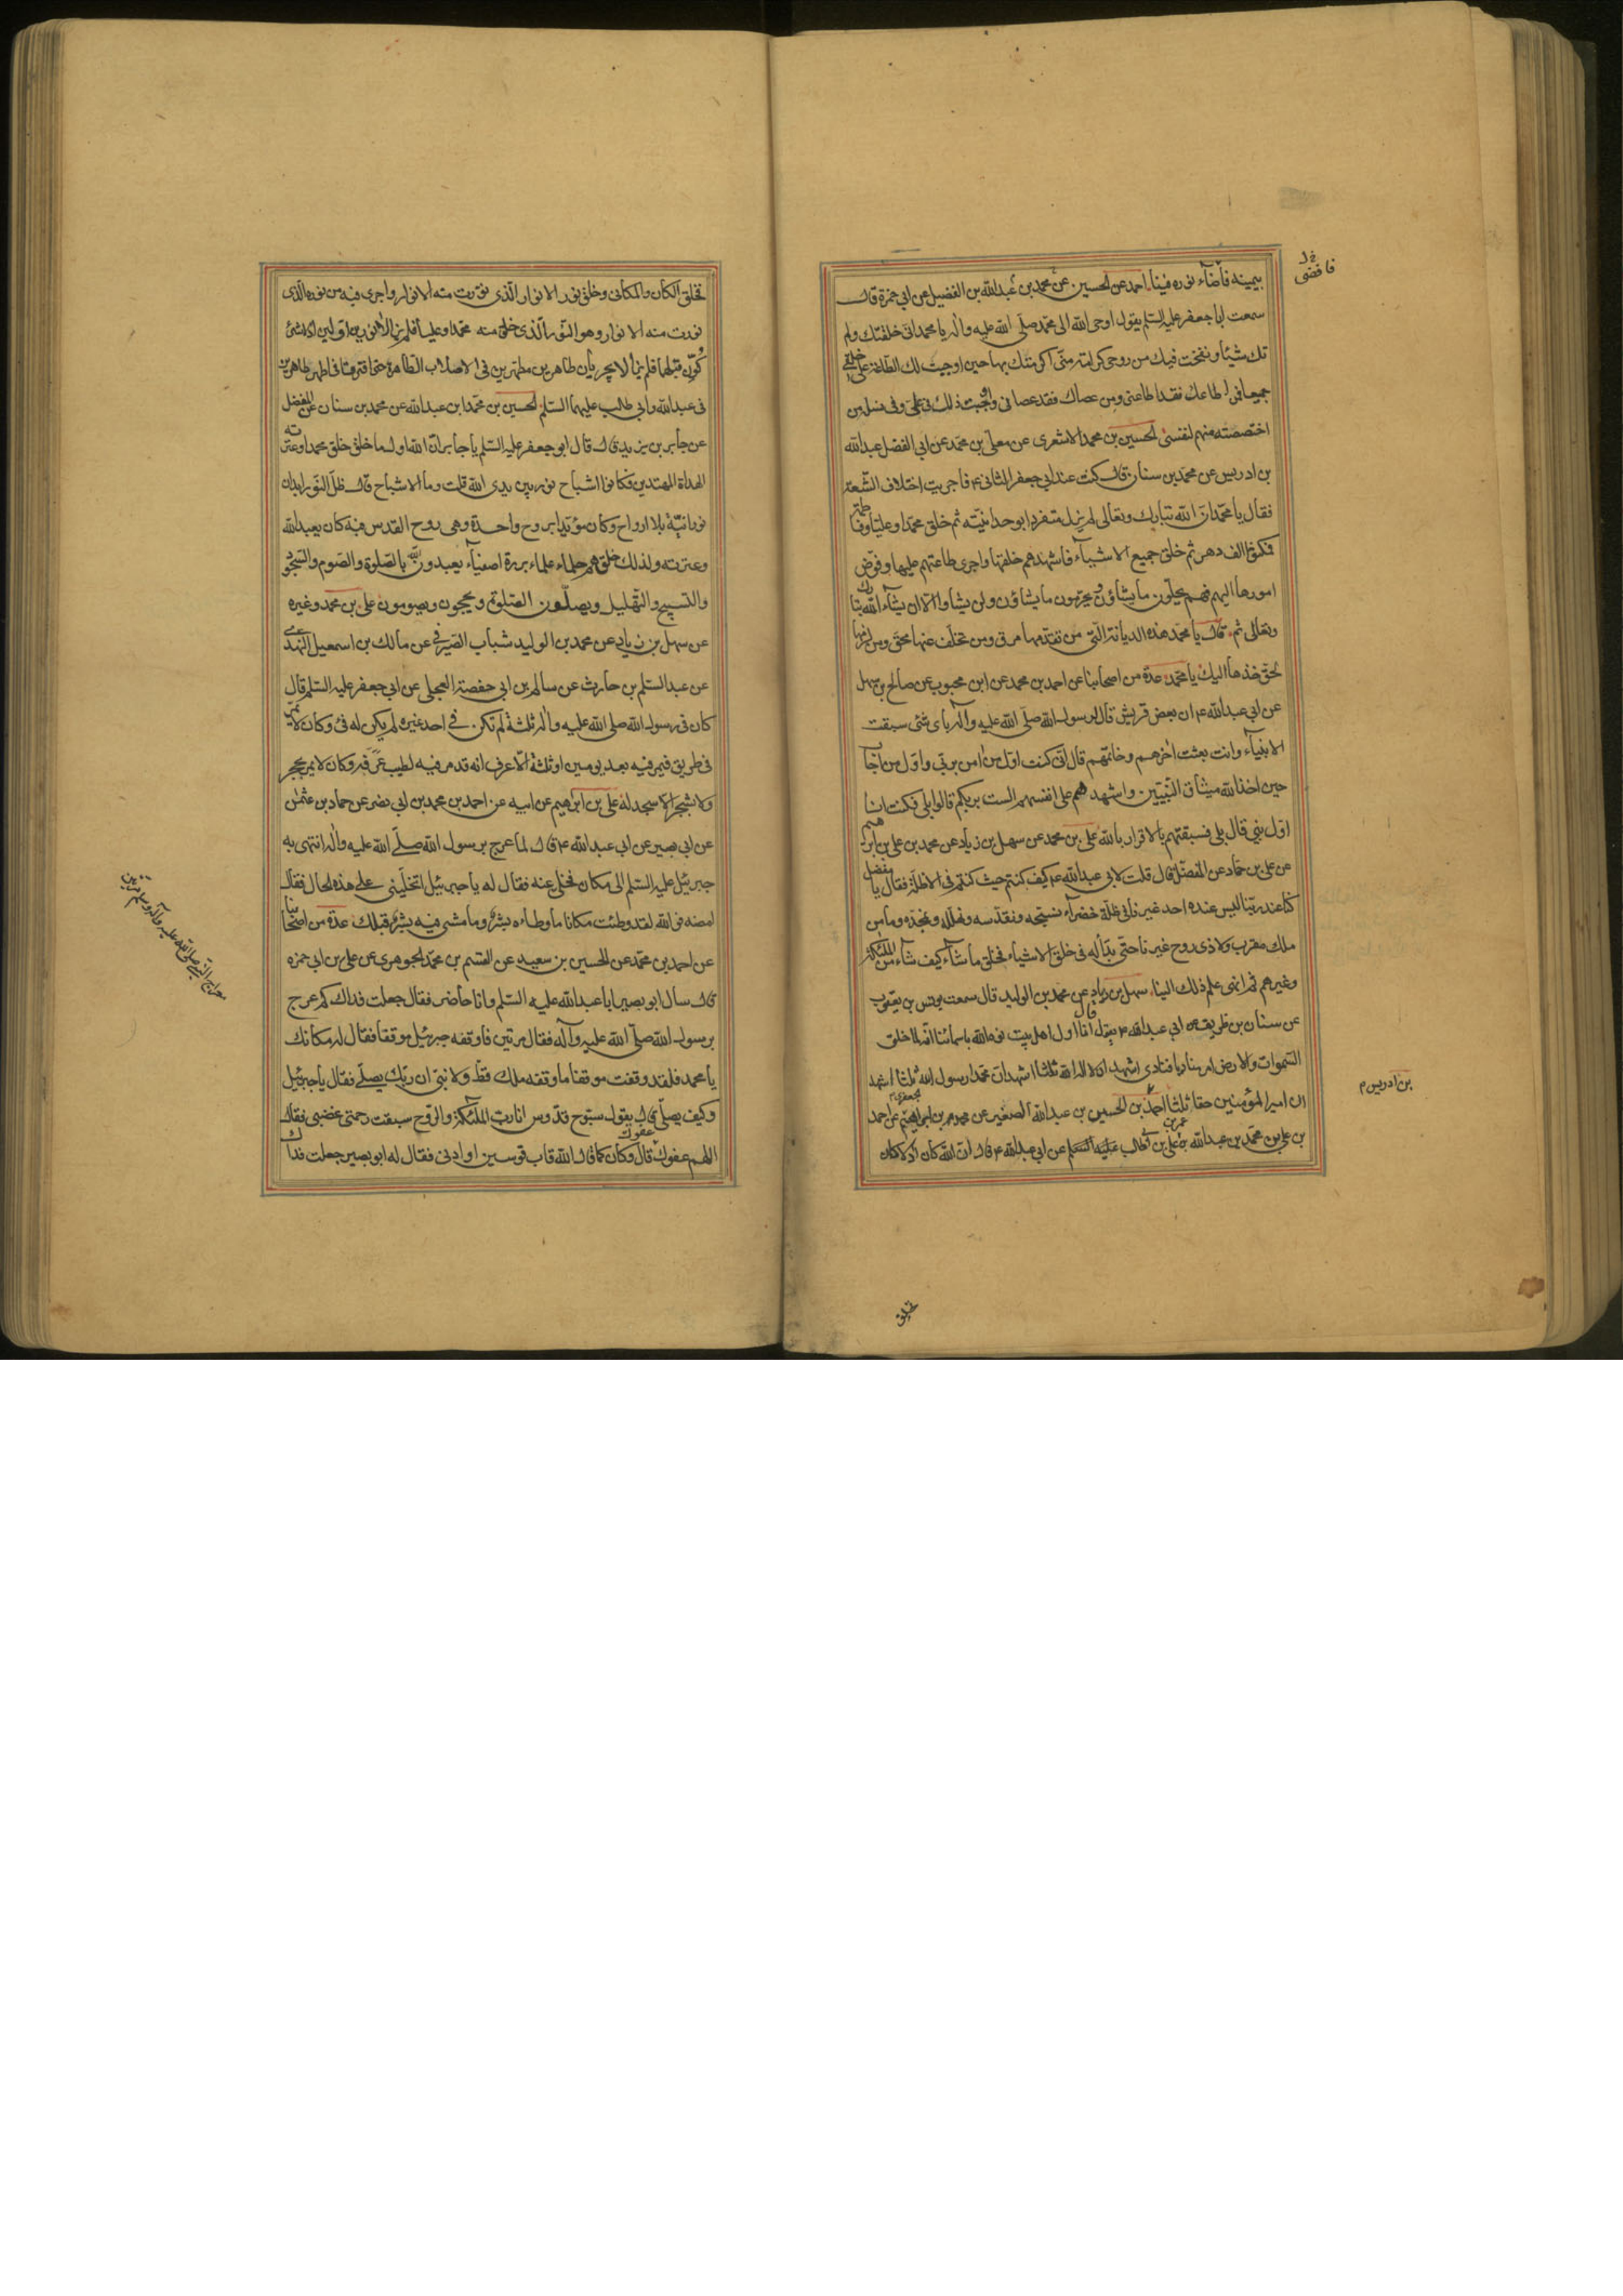 بيمينه فأضاء نوره فينا احمد عن الحسين عن محمد بن عبدالله بن الفضيل عن ابي حمزة قال
سمعت ابا جعفر عليه السلم يقول اوحى الله الى محمد صلى الله عليه واله يا محمد انى خلقتك ولم
تك شيئا ونفخت فيك من روحى كرامة منى اكرمتك بها حين اوجبت لك الطاعة على خلقى
جميعا فمن اطاعك فقد اطاعنى ومن عصاك فقد عصانى واوجبت ذلك فى على وفى نسله من
اختصصته منهم لنفسى الحسين بن محمد الاشعرى عن معلى بن محمد عن ابي الفضل عبدالله
بن ادريس عن محمد بن سنان قال كنت عند ابي جعفر الثانى ع فاجريت اختلاف الشيعة
فقال يا محمد ان الله تبارك وتعالى لم يزل متفردا بوحدانيته ثم خلق محمدا وعليا وفاطمة
فمكثوا الف دهر ثم خلق جميع الاشياء فاشهدهم خلقها واجرى طاعتهم عليها وفوض
امورها اليهم فهم يحلون ما يشاؤن ويحرمون ما يشاؤن ولن يشاوا الا ان يشاء الله تبارك
وتعالى ثم قال يا محمد هذه الديانة التى من تقدمها مرق ومن تخلف عنها محق ومن لزمها
لحق خذها اليك يا محمد عدة من اصحابنا عن احمد بن محمد عن ابن محبوب عن صالح بن سهل
عن ابي عبدالله ع ان بعض قريش قال لرسول الله صلى الله عليه واله باى شئ سبقت
الانبياء وانت بعثت اخرهم وخاتمهم قال انى كنت اول من امن بربى واول من اجاب
حين اخذ الله ميثاق النبيين واشهدهم على انفسهم الست بربكم قالوا بلى فكنت انا
اول نبى قال بلى فسبقتهم بالاقرار بالله على بن محمد عن سهل بن زياد عن محمد بن على بن ابرهيم
عن على بن حماد عن المفضل قال قلت لابى عبدالله ع كيف كنتم حيث كنتم فى الاظلة فقال يا مفضل
كنا عند ربنا ليس عنده احد غيرنا فى ظلة خضراء نسبحه ونقدسه ونهلله ونمجده وما من
ملك مقرب ولا ذى روح غيرنا حتى بدأ له فى خلق الاشياء فخلق ما شاء كيف شاء من الملئكة
وغيرهم ثم انهى علم ذلك الينا سهل بن زياد عن محمد بن الوليد قال سمعت يونس بن يعقوب
عن سنان بن طريف عن ابي عبدالله ع يقول قال انا اول اهل بيت نوه الله باسمائنا انه لما خلق
السموات والارض امر مناديا فنادى اشهد ان لا اله الا الله ثلثا اشهد ان محمدا رسول الله ثلثا اشهد
ان امير المؤمنين حقا ثلثا احمد بن الحسين بن عبدالله الصغير عن محمد بن ابرهيم الجعفرى عن احمد
بن على بن محمد بن عبدالله بن عمر بن على بن ابي طالب عليه السلم عن ابي عبدالله ع قال ان الله كان اذ لا كان
فافضى
بن ادريس م
تخلق
تخلق الكان والمكان وخلق نور الانوار الذى نورت منه الانوار واجرى فيه من نوره الذى
نورت منه الانوار وهو النور الذى خلق منه محمدا وعليا فلم يزالا نورين اولين اذ لا شئ
كون قبلهما فلم يزالا يجريان طاهرين مطهرين فى الاصلاب الطاهرة حتى افترقا فى اطهر طاهرين
فى عبدالله وابى طالب عليهما السلم الحسين بن محمد بن عبدالله عن محمد بن سنان عن المفضل
عن جابر بن يزيد قال قال ابو جعفر عليه السلم يا جابر ان الله اول ما خلق خلق محمدا وعترته
الهداة المهتدين فكانوا اشباح نور بين يدى الله قلت وما الاشباح قال ظل النور ابدان
نورانية بلا ارواح وكان مؤيدا بروح واحدة وهى روح القدس فبه كان يعبد الله
وعترته ولذلك خلقهم حلماء علماء بررة اصفياء يعبدون الله بالصلوة والصوم والسجود
والتسبيح والتهليل ويصلون الصلوة ويحجون ويصومون على بن محمد وغيره
عن سهل بن زياد عن محمد بن الوليد شباب الصيرفى عن مالك بن اسمعيل النهدى
عن عبد السلم بن حارث عن سالم بن ابى حفصة العجلى عن ابى جعفر عليه السلم قال
كان فى رسول الله صلى الله عليه واله ثلثة لم تكن فى احد غيره لم يكن له فئ وكان لا يمر
فى طريق فيمر فيه بعد يومين او ثلثة الا عرف انه قد مر فيه لطيب عرفه وكان لا يمر بحجر
ولا شجر الا سجد له على بن ابرهيم عن ابيه عن احمد بن محمد بن ابى نصر عن حماد بن عثمن
عن ابى بصير عن ابى عبدالله ع قال لما عرج برسول الله صلى الله عليه واله انتهى به
جبرئيل عليه السلم الى مكان فخلى عنه فقال له يا جبرئيل اتخلينى على هذه الحال فقال
امضه فوالله لقد وطئت مكانا ما وطاءه بشر وما مشى فيه بشر قبلك عدة من اصحابنا
عن احمد بن محمد عن الحسين بن سعيد عن القسم بن محمد الجوهرى عن على بن ابى حمزه
قال سأل ابو بصير ابا عبدالله عليه السلم وانا حاضر فقال جعلت فداك كم عرج
برسول الله صلى الله عليه وآله فقال مرتين فاوقفه جبرئيل موقفا فقال له مكانك
يا محمد فلقد وقفت موقفا ما وقفه ملك قط ولا نبى ان ربك يصلى فقال يا جبرئيل
وكيف يصلى قال يقول سبوح قدوس انا رب الملئكة والروح سبقت رحمتى غضبى فقال
اللهم عفوك عفوك قال وكان كما قال الله قاب قوسين او ادنى فقال له ابو بصير جعلت فداك
معراج النبى صلى الله عليه وآله وسلم مرتين